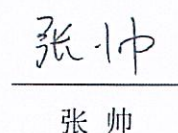 张帅
张 帅